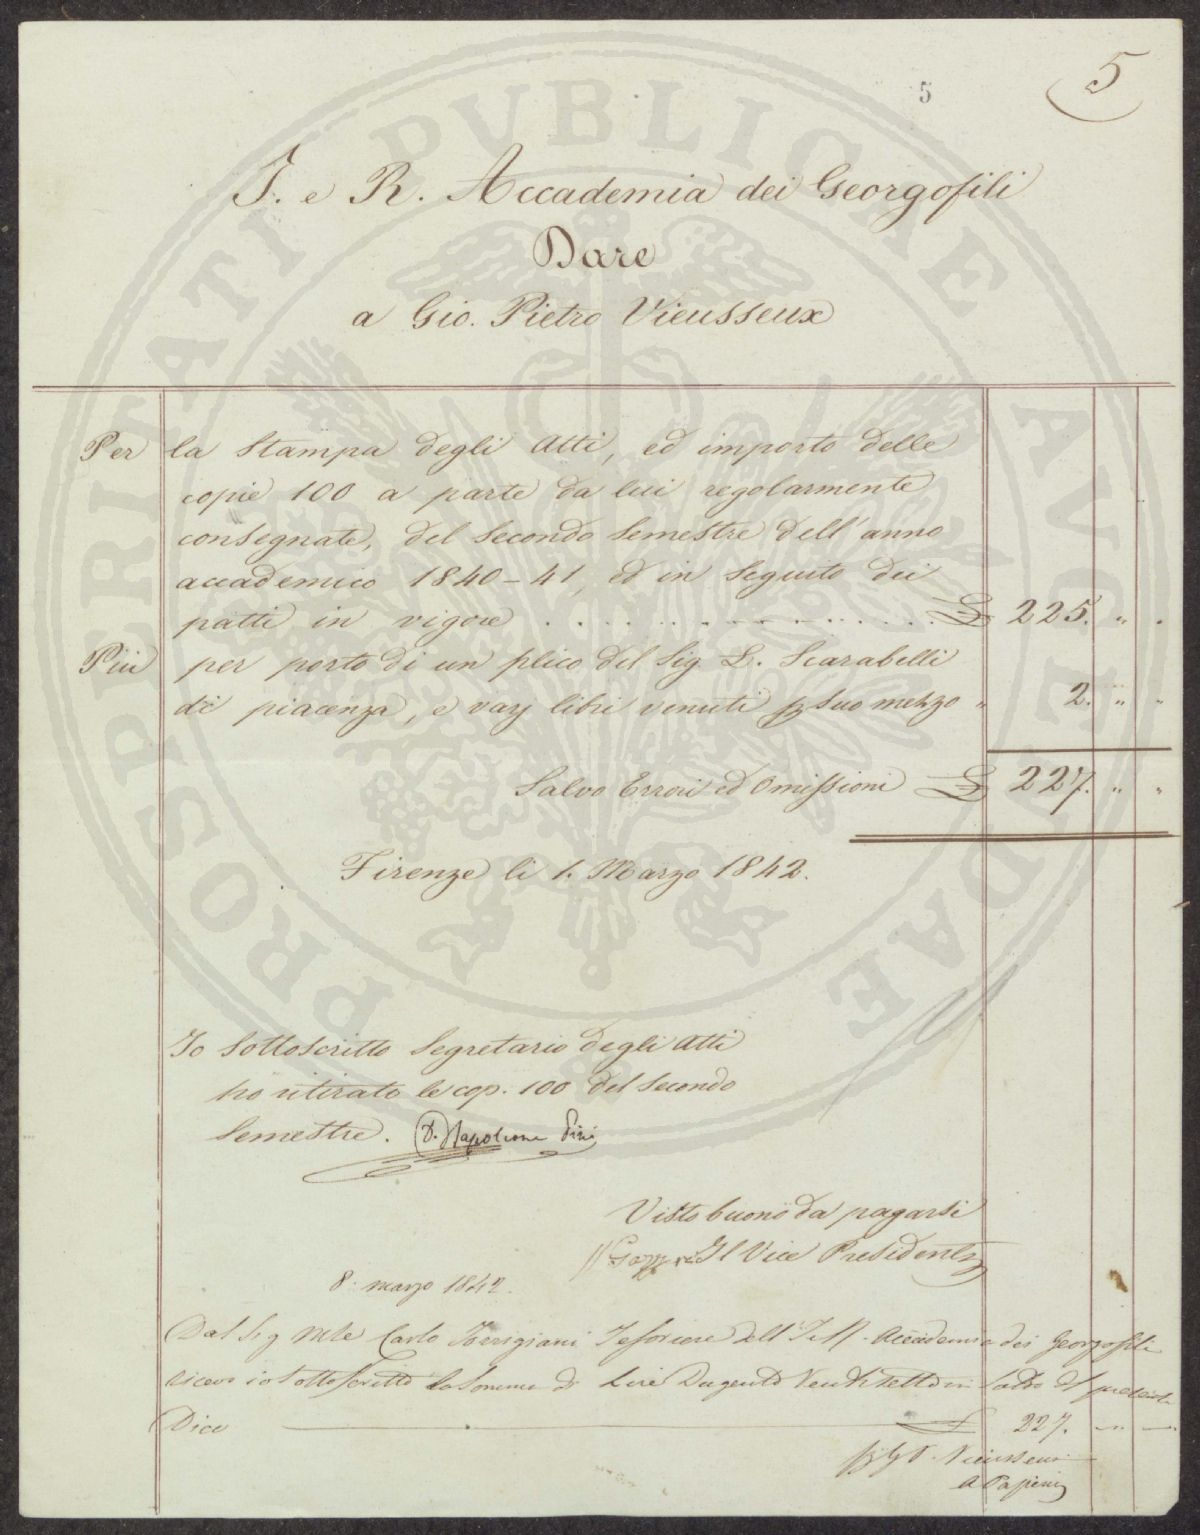 5
5
I. e R. Accademia dei Georgofili
Dare
a Gio. Pietro Vieusseux
Per la Stampa degli Atti, ed importo delle
copie 100 a parte da lui regolarmente
consegnate, del secondo semestre dell'anno
accademico 1840-41, ed in seguito dei
patti in vigore . . . . . . . . . . . . . £ 225. " .
Più per porto di un plico del Sig. L. Scarabelli
di piacenza, e varj libri venuti p suo mezzo " 2. " "
Salvo Errori ed Omissioni £ 227. " "
Firenze li 1. Marzo 1842.
Io Sottoscritto Segretario degli Atti
ho ritirato le cop. 100 del Secondo
Semestre. D. Napoleone Pini
Visto buono da pagarsi
Il Vice Presidente
8. marzo 1842.
Dal Sig Mse Carlo Torrigiani Tesoriere dell'I e R. Accademia dei Georgofili
ricevo io sottoscritto la somma di Lire Dugento Ventisette in saldo del presente
Dico £ 227. " "
p G P. Vieusseux
A Papini
PROSPERITATI PUBLICAE AUGENDAE